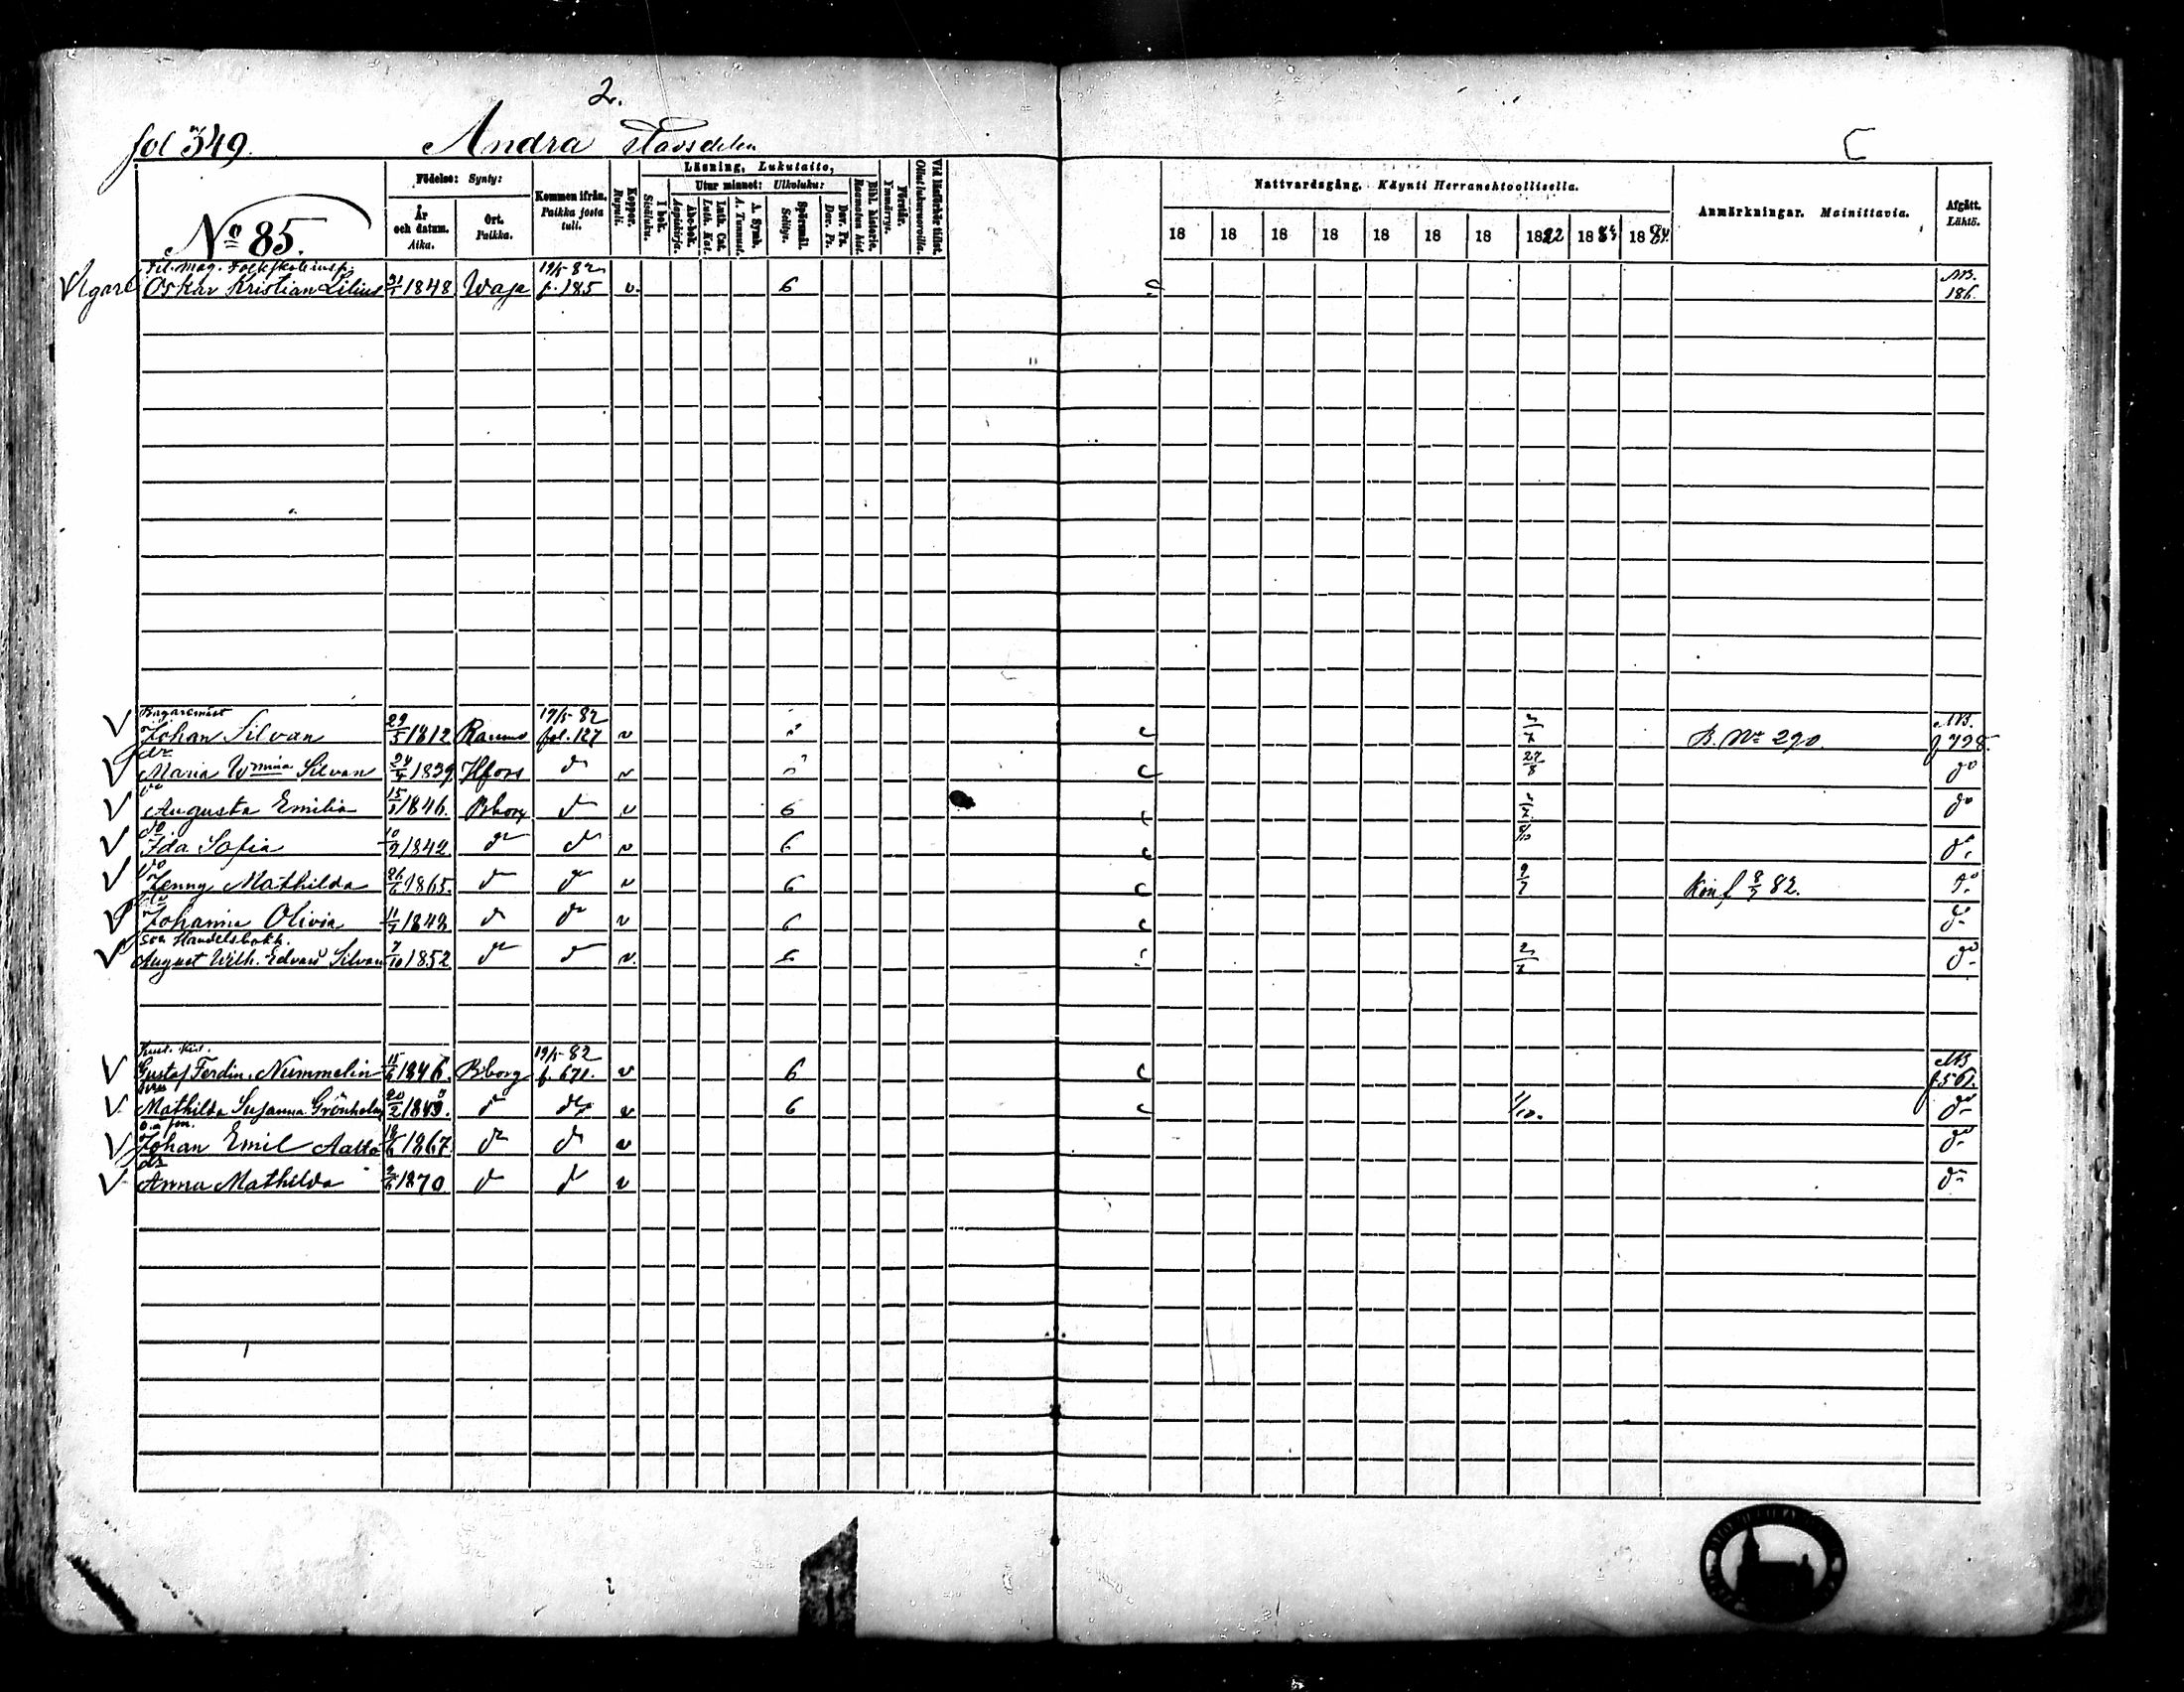 2.
fol 349. Andra stadsdelen C
No 85.
Födelse: Synty:
År och datum. Aika.
Ort. Paikka.
Kommen ifrån. Paikka josta tuli.
Koppor. Rupuli.
Läsning, Lukutaito,
I bok. Sisäluku.
Utur minnet: Ulkoluku:
Abc-bok. Aapiskirja.
Luth. Cat. Luth. Kat.
A. Symb. A. Tunnust.
Spörsmål. Selitys.
Dav. Ps. Dav. Ps.
Bibl. historie. Raamatun hist.
Förstår. Ymmärrys.
Vid läsförhör tillst. Ollut lukuvuoroilla.
Nattvardsgång. Käynti Herranehtoollisella.
18 18 18 18 18 18 18 1882 1883 1884
Anmärkningar. Mainittavia.
Afgått. Lähtö.
Fil. mag. Folkskoleinsp. 19/5 82 NB.
Oskar Kristian Lilius 1848 f. 185 v. 6 c 186.
Bagaremäst 19/5 82 NB.
Johan Silvan 29/5 1812 Raumo fol. 127 v c B. No 290. f 798.
dr
Maria Wmina Silvan 1839 Hfors do v c 27/8 do
do
Augusta Emilia 1846. Bborg do v 6 c do
do
Ida Sofia 1842 do do v 6 c do
do
Jenny Mathilda 26/6 1865. do do v 6 c 9/7 Konf 8/7 82. do
do
Johanna Olivia do do v 6 c do
son Handelsbokh.
August Wilh. Edvard Silvan 7/10 1852 do do v. 6 do
19/5 82 NB
Gustaf Ferdin. Nummelin 1846. Bborg f. 671. v 6 c f. 561.
hru
Mathilda Susanna Grönholm 20/2 do do v 6 c 1/10. do
o. ä. son.
Johan Emil Aalto 1867. do do v do
dr
Anna Mathilda 1870 do do v do